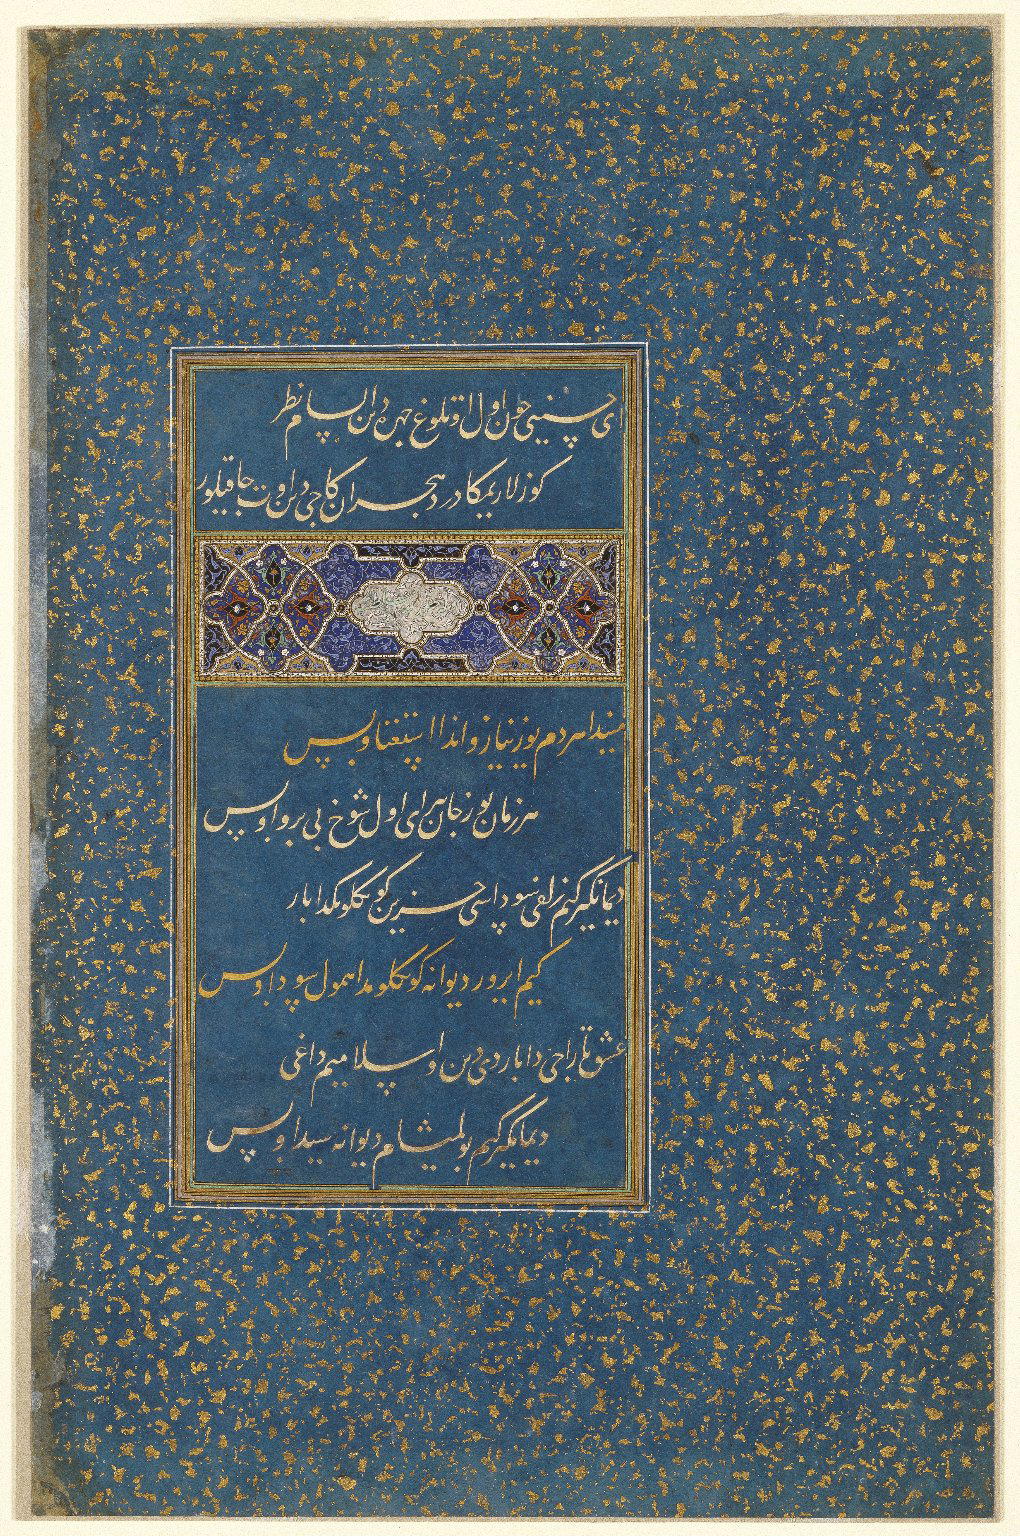 ای حسینی چون اول اوتلوغ چهره دین السام نظر
کوزلاریمکا درد هجران کاجی دین اوت جاقیلور
میندا هر دم یوز نیاز و اندا استغنا و بس
هر زمان یوز جان برای اول شوخ بی پروا و بس
دیمانکیز کیم زلفی سوداسی حزین کونکلومدا بار
کیم ایرور دیوانه کونکلومدا همول سودا و بس
عشق تاراجی دا باردی دین و اسلامیم داغی
دیمانکیز کیم بولمیشام دیوانه شیدا و بس